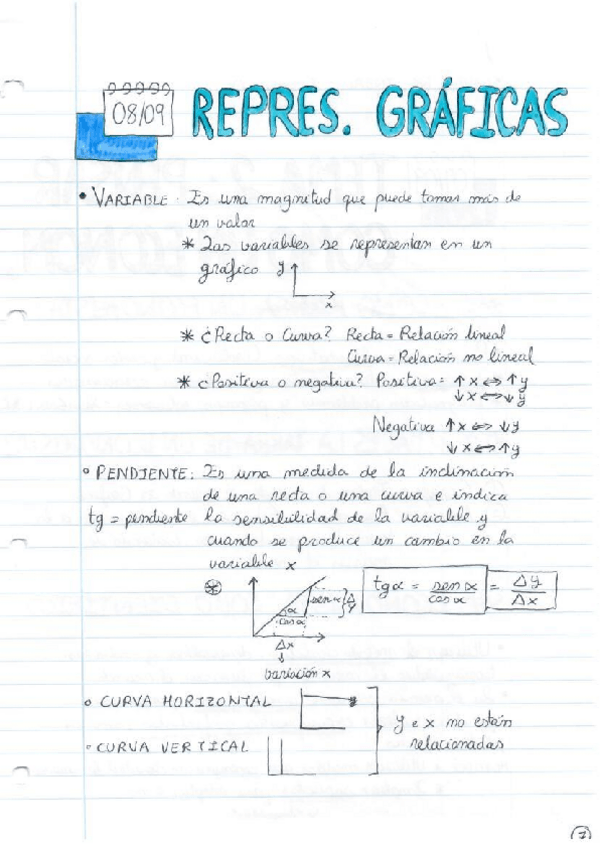 08/09
REPRES. GRÁFICAS
• VARIABLE. Es una magnitud que puede tomar más de
un valor
* Las variables se representan en un
gráfico y
x
* ¿Recta o Curva? Recta = Relación lineal
Curva = Relación no lineal
* ¿Positiva o negativa? Positiva: ↑x ⇔ ↑y
↓x ⇔ ↓y
Negativa ↑x ⇔ ↓y
↓x ⇔ ↑y
• PENDIENTE: Es una medida de la inclinación
de una recta o una curva e indica
tg = pendiente la sensibilidad de la variable y
cuando se produce un cambio en la
variable x
* tg α = sen α / cos α = Δy / Δx
sen α } Δy
α
cos α
Δx
↓
variación x
• CURVA HORIZONTAL
y e x no están
• CURVA VERTICAL
relacionadas
7